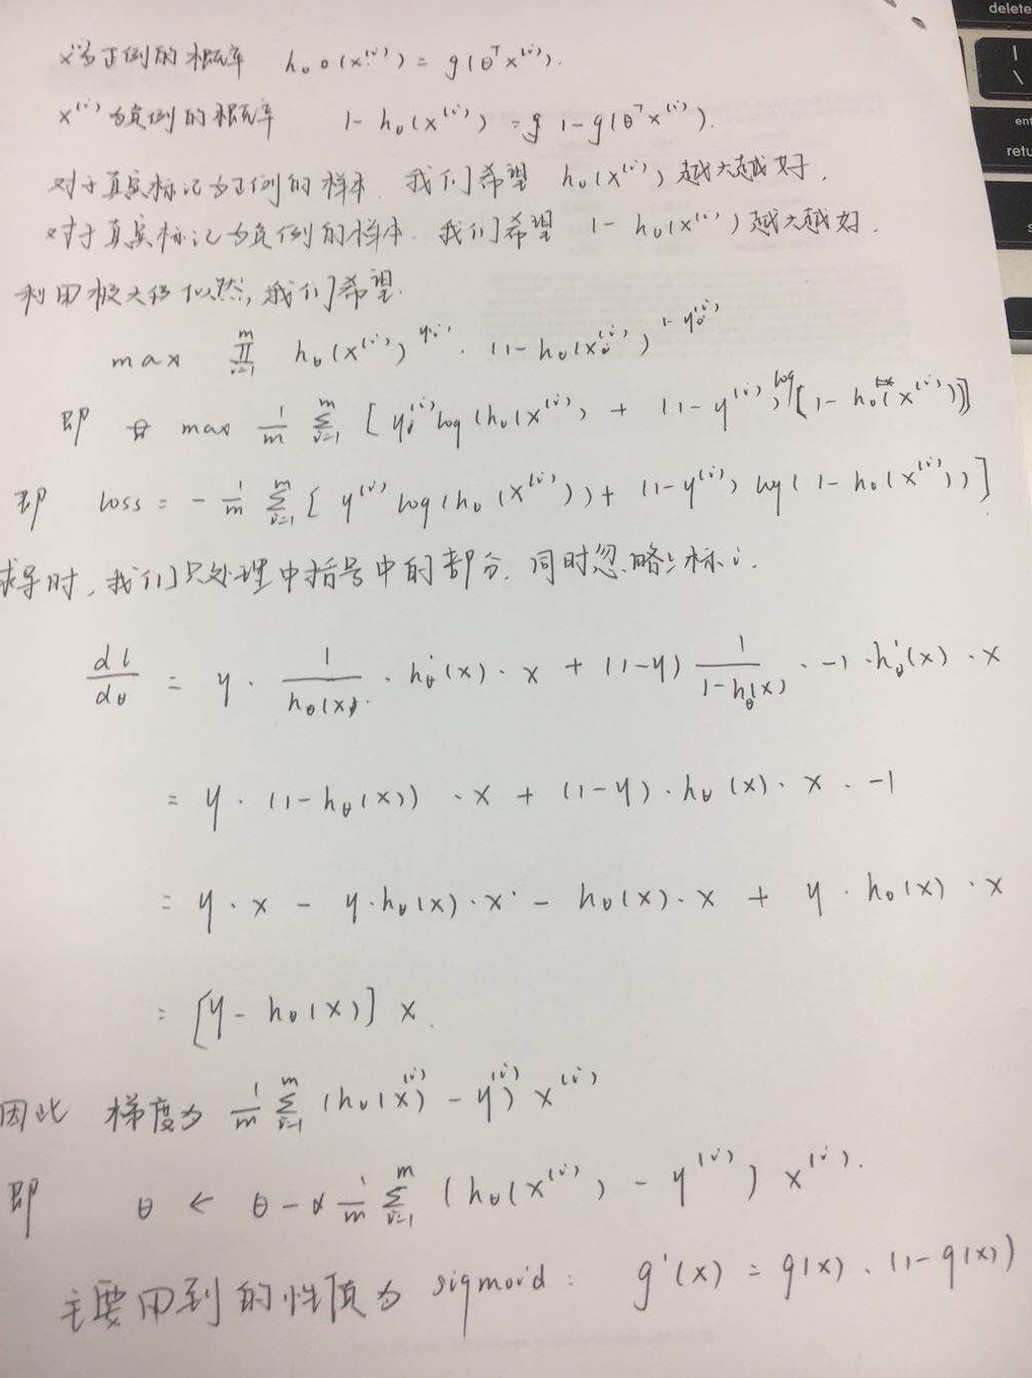 x为正例的概率 hθ(x⁽ⁱ⁾) = g(θᵀx⁽ⁱ⁾).
x⁽ⁱ⁾为负例的概率 1 - hθ(x⁽ⁱ⁾) = 1 - g(θᵀx⁽ⁱ⁾).
对于真实标记为正例的样本, 我们希望 hθ(x⁽ⁱ⁾)越大越好.
对于真实标记为负例的样本, 我们希望 1 - hθ(x⁽ⁱ⁾)越大越好.
利用极大似然, 我们希望.
max ∏ᵢ₌₁ᵐ hθ(x⁽ⁱ⁾)^y⁽ⁱ⁾ · (1 - hθ(x⁽ⁱ⁾))^(1-y⁽ⁱ⁾)
即 max 1/m ∑ᵢ₌₁ᵐ [y⁽ⁱ⁾log(hθ(x⁽ⁱ⁾) + (1-y⁽ⁱ⁾)log[1 - hθ(x⁽ⁱ⁾)]]
即 loss = - 1/m ∑ᵢ₌₁ᵐ [y⁽ⁱ⁾ log(hθ(x⁽ⁱ⁾)) + (1-y⁽ⁱ⁾) log(1 - hθ(x⁽ⁱ⁾))]
求导时, 我们只处理中括号中的部分, 同时忽略上标i.
dl/dθ = y · 1/hθ(x) · hθ'(x) · x + (1-y) 1/(1-hθ(x)) · -1 · hθ'(x) · x
= y · (1-hθ(x)) · x + (1-y) · hθ(x) · x · -1
= y · x - y · hθ(x) · x - hθ(x) · x + y · hθ(x) · x
= [y - hθ(x)] x.
因此 梯度为 1/m ∑ᵢ₌₁ᵐ (hθ(x⁽ⁱ⁾) - y⁽ⁱ⁾) x⁽ⁱ⁾
即 θ ← θ - α 1/m ∑ᵢ₌₁ᵐ (hθ(x⁽ⁱ⁾) - y⁽ⁱ⁾) x⁽ⁱ⁾.
主要用到的性质为 sigmoid: g'(x) = g(x) · (1-g(x))
delete
ent
retu